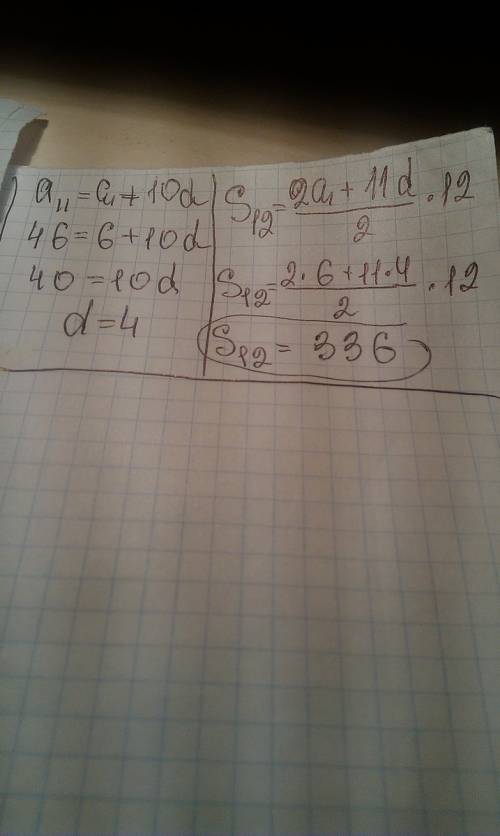 a₁₁ = a₁ + 10d
46 = 6 + 10d
40 = 10d
d = 4
S₁₂ = (2a₁ + 11d)/2 · 12
S₁₂ = (2·6 + 11·4)/2 · 12
S₁₂ = 336